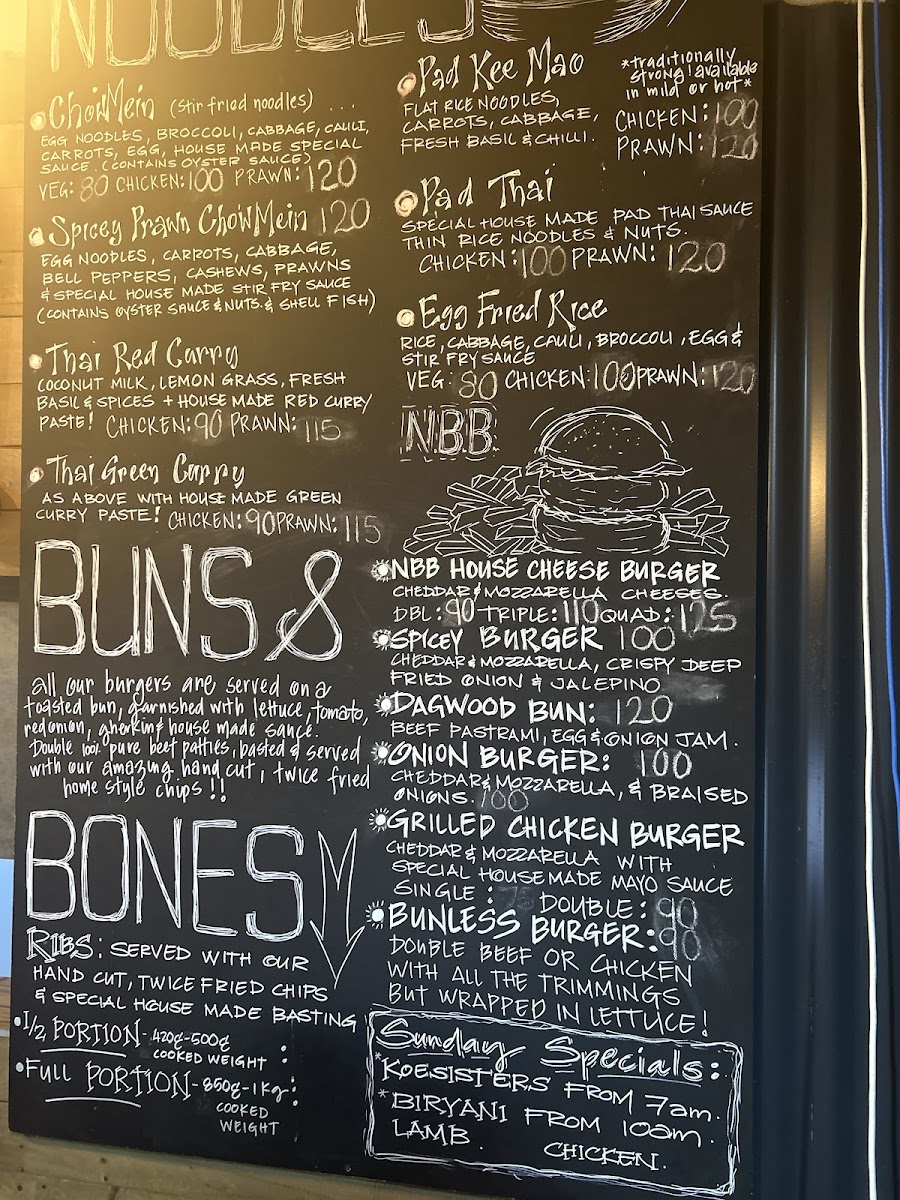 NOODLES
ChowMein (stir fried noodles) ...
EGG NOODLES, BROCCOLI, CABBAGE, CAULI,
CARROTS, EGG, HOUSE MADE SPECIAL
SAUCE. (CONTAINS OYSTER SAUCE)
VEG: 80 CHICKEN: 100 PRAWN: 120
Spicey Prawn ChowMein 120
EGG NOODLES, CARROTS, CABBAGE,
BELL PEPPERS, CASHEWS, PRAWNS
& SPECIAL HOUSE MADE STIR FRY SAUCE
(CONTAINS OYSTER SAUCE & NUTS & SHELL FISH)
Thai Red Curry
COCONUT MILK, LEMON GRASS, FRESH
BASIL & SPICES + HOUSE MADE RED CURRY
PASTE! CHICKEN: 90 PRAWN: 115
Thai Green Curry
AS ABOVE WITH HOUSE MADE GREEN
CURRY PASTE! CHICKEN: 90 PRAWN: 115
Pad Kee Mao
FLAT RICE NOODLES,
CARROTS, CABBAGE,
FRESH BASIL & CHILLI.
*traditionally
strong! available
in mild or hot*
CHICKEN: 100
PRAWN: 120
Pad Thai
SPECIAL HOUSE MADE PAD THAI SAUCE
THIN RICE NOODLES & NUTS.
CHICKEN: 100 PRAWN: 120
Egg Fried Rice
RICE, CABBAGE, CAULI, BROCCOLI, EGG &
STIR FRY SAUCE
VEG: 80 CHICKEN: 100 PRAWN: 120
BUNS &
all our burgers are served on a
toasted bun, garnished with lettuce, tomato,
red onion, gherkin & house made sauce.
Double 100% pure beef patties, basted & served
with our amazing hand cut, twice fried
home style chips!!
BONES
RIBS: SERVED WITH OUR
HAND CUT, TWICE FRIED CHIPS
& SPECIAL HOUSE MADE BASTING
1/2 PORTION - 420g-500g :
COOKED WEIGHT
FULL PORTION - 850g-1Kg :
COOKED
WEIGHT
NBB
NBB HOUSE CHEESE BURGER
CHEDDAR & MOZZARELLA CHEESES.
DBL: 90 TRIPLE: 110 QUAD: 125
SPICEY BURGER 100
CHEDDAR & MOZZARELLA, CRISPY DEEP
FRIED ONION & JALEPINO
DAGWOOD BUN: 120
BEEF PASTRAMI, EGG & ONION JAM.
ONION BURGER: 100
CHEDDAR & MOZZARELLA, & BRAISED
ONIONS. 100
GRILLED CHICKEN BURGER
CHEDDAR & MOZZARELLA WITH
SPECIAL HOUSE MADE MAYO SAUCE
SINGLE: 75 DOUBLE: 90
BUNLESS BURGER: 90
DOUBLE BEEF OR CHICKEN
WITH ALL THE TRIMMINGS
BUT WRAPPED IN LETTUCE!
Sunday Specials:
*KOESISTERS FROM 7am.
*BIRYANI FROM 10am.
LAMB CHICKEN.